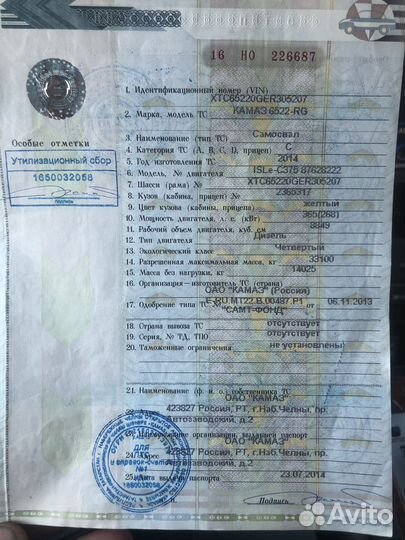 16 НО 226687
1. Идентификационный номер (VIN) XTC65220GER305207
2. Марка, модель ТС КАМАЗ 6522-RG
Особые отметки
Утилизационный сбор
1650032058
подпись
3. Наименование (тип ТС) Самосвал
4. Категория ТС (А, В, С, D, прицеп) С
5. Год изготовления ТС 2014
6. Модель, № двигателя ISLe-C375 87628222
7. Шасси (рама) № XTC65220GER305207
8. Кузов (кабина, прицеп) № 2365317
9. Цвет кузова (кабины, прицепа) желтый
10. Мощность двигателя, л. с. (кВт) 365(268)
11. Рабочий объем двигателя, куб. см 8849
12. Тип двигателя Дизель
13. Экологический класс Четвертый
14. Разрешенная максимальная масса, кг 33100
15. Масса без нагрузки, кг 14025
16. Организация—изготовитель ТС (страна)
ОАО "КАМАЗ" (Россия)
17. Одобрение типа ТС № E-RU.MT22.B.00487.P1 от 06.11.2013
"САМТ-ФОНД"
18. Страна вывоза ТС отсутствует
19. Серия, № ТД, ТПО отсутствует
20. Таможенные ограничения не установлены
21. Наименование (ф. и. о.) собственника ТС
ОАО "КАМАЗ"
22. Адрес 423827 Россия, РТ, г.Наб.Челны, пр.
Автозаводский, д.2
организации, выдавшей паспорт
ОАО "КАМАЗ"
24. Адрес 423827 Россия, РТ, г.Наб.Челны, пр.
Автозаводский, д.2
25. Дата выдачи паспорта 23.07.2014
Подпись
ДЛЯ
ПТС
и справок-счетов
№1
1650032058
Avito